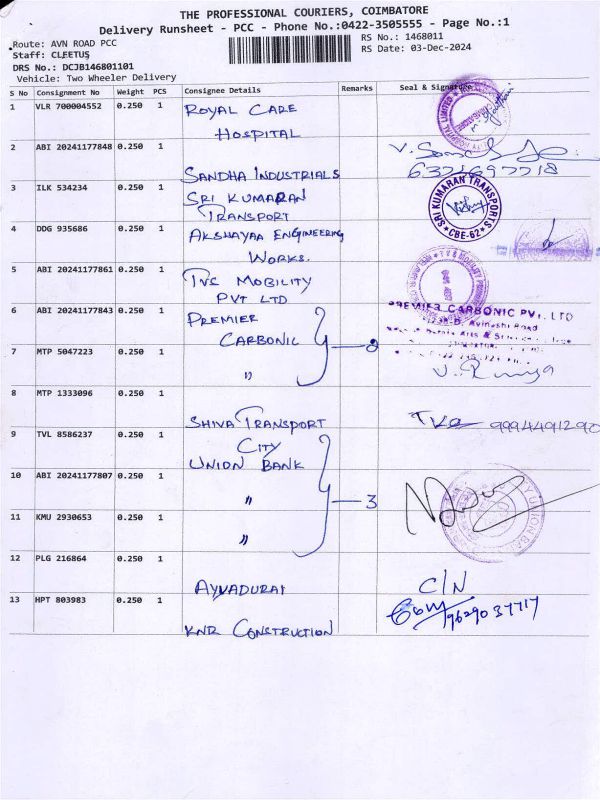 THE PROFESSIONAL COURIERS, COIMBATORE
Delivery Runsheet - PCC - Phone No.:0422-3505555 - Page No.:1
Route: AVN ROAD PCC
RS No.: 1468011
Staff: CLEETUS
RS Date: 03-Dec-2024
DRS No.: DCJB146801101
Vehicle: Two Wheeler Delivery
S No Consignment No Weight PCS Consignee Details Remarks Seal & Signature
1 VLR 700004552 0.250 1 ROYAL CARE
HOSPITAL
2 ABI 20241177848 0.250 1
SANDHA INDUSTRIALS
3 ILK 534234 0.250 1 SRI KUMARAN
TRANSPORT
SRI KUMARAN TRANSPORTS
CBE-62
4 DDG 935686 0.250 1 AKSHAYAA ENGINEERING
WORKS.
5 ABI 20241177861 0.250 1 TVS MOBILITY
PVT LTD
6 ABI 20241177843 0.250 1 PREMIER
CARBONIC
PREMIER CARBONIC PVT. LTD
Avinashi Road
7 MTP 5047223 0.250 1 "
8 MTP 1333096 0.250 1
SHIVA TRANSPORT
9 TVL 8586237 0.250 1 CITY
UNION BANK
10 ABI 20241177807 0.250 1 "
3
11 KMU 2930653 0.250 1 "
12 PLG 216864 0.250 1
AYYADURAI
C/N
13 HPT 803983 0.250 1
9629037717
KNR CONSTRUCTION